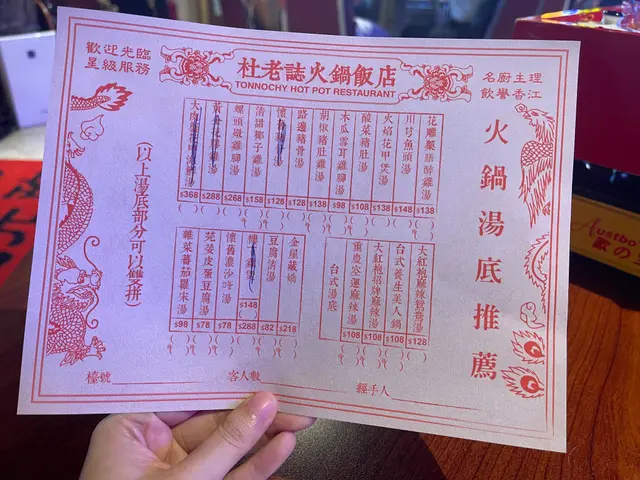 歡迎光臨
星級服務
杜老誌火鍋飯店
TONNOCHY HOT POT RESTAURANT
名廚主理
飲譽香江
火鍋湯底推薦
花雕藥膳醉雞湯 $138
川芎魚頭湯 $148
火焰花甲煲湯 $138
酸菜豬肚湯 $108
木瓜雪耳雞腳湯 $98
胡椒豬肚雞湯 $138
路邊豬骨湯 $128
懷舊 骨湯 $128
清甜椰子雞湯 $158
螺頭燉雞腳湯 $268
花膠雞湯 $288
大肉 湯 $368
大紅袍麻辣鴛鴦湯 $128
台式養生美人鍋 $108
大紅袍招牌麻辣湯 $108
重慶 麻辣湯 $108
台式湯底
金屋藏嬌 $218
豆腐清湯 $82
$148
$288
懷舊濃沙嗲湯 $78
芫茜皮蛋豆腐湯 $78
雜菜蕃茄羅宋湯 $98
(以上湯底部分可以雙拼)
檯號 客人數 經手人
Austbo